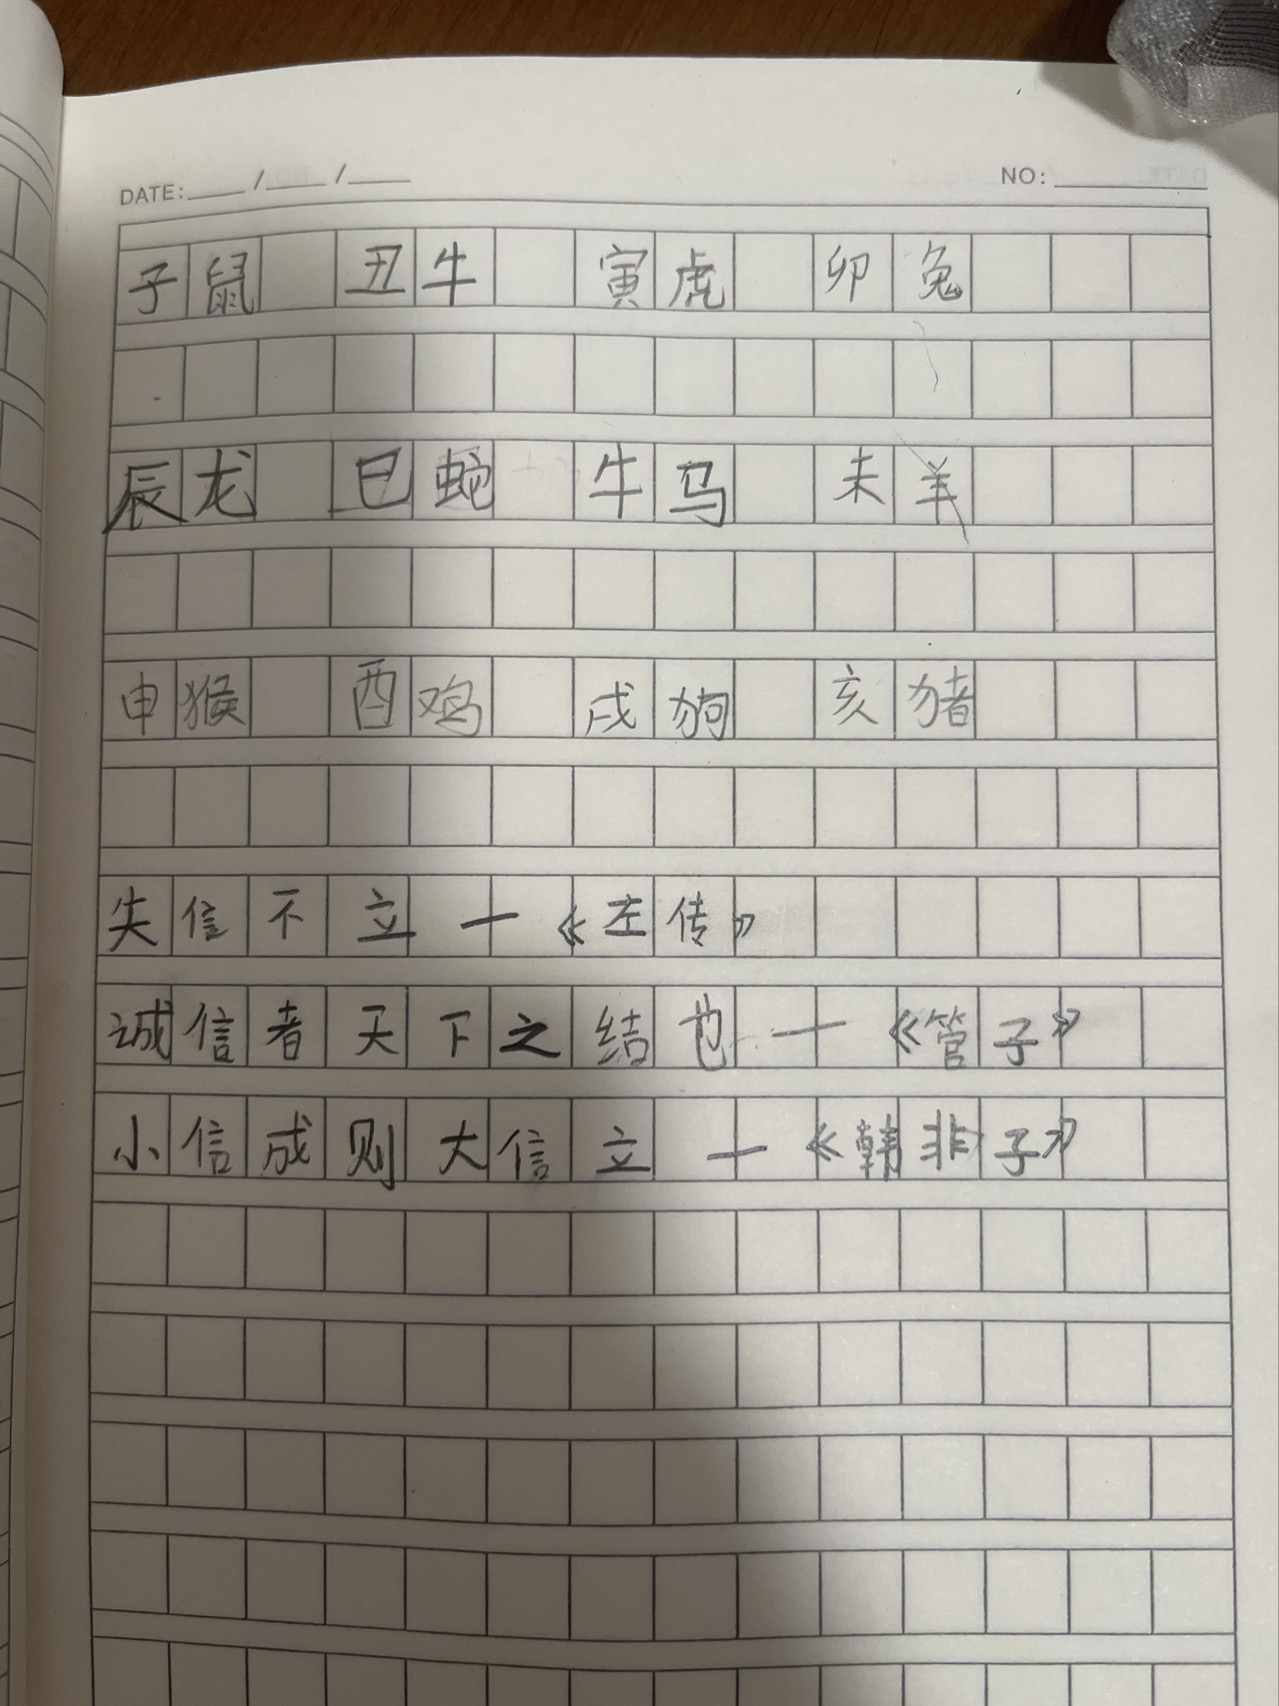 DATE: / / NO:
子鼠 丑牛 寅虎 卯兔
辰龙 巳蛇 牛马 未羊
申猴 酉鸡 戌狗 亥猪
失信不立—《左传》
诚信者天下之结也—《管子》
小信成则大信立—《韩非子》